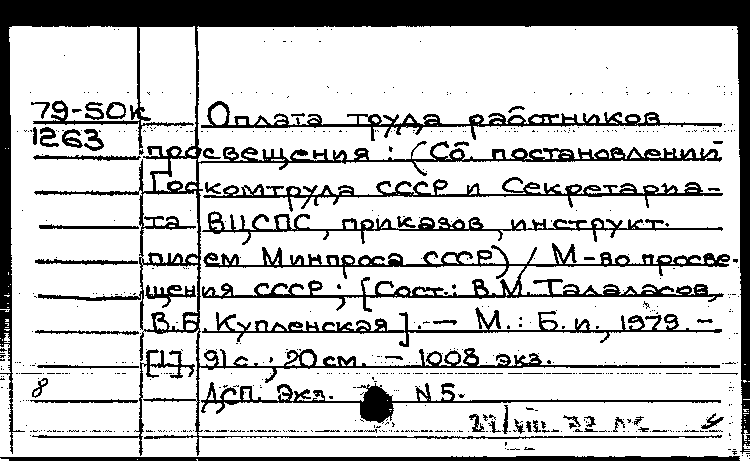 79-50к Оплата труда работников
1263 просвещения : (Сб. постановлений
Госкомтруда СССР и Секретариа-
та ВЦСПС, приказов, инструкт.
писем Минпроса СССР) / М-во просве-
щения СССР ; [Сост.: В.М. Талаласов,
В.Б. Купленская]. — М. : Б. и., 1979. —
[1], 91 с. ; 20 см. — 1008 экз.
8 ДСП. Экз. N 5.
27/VIII 79